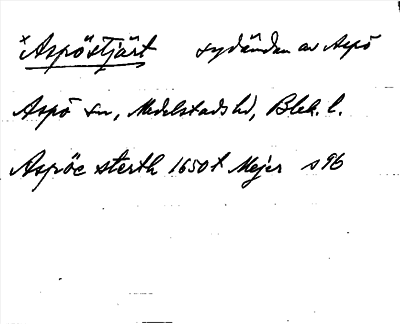 ×Aspöstjärt sydändan av Aspö
Aspö sn, Medelstads hd, Blek. l.
Aspöe sterth 1650t Mejer s 96